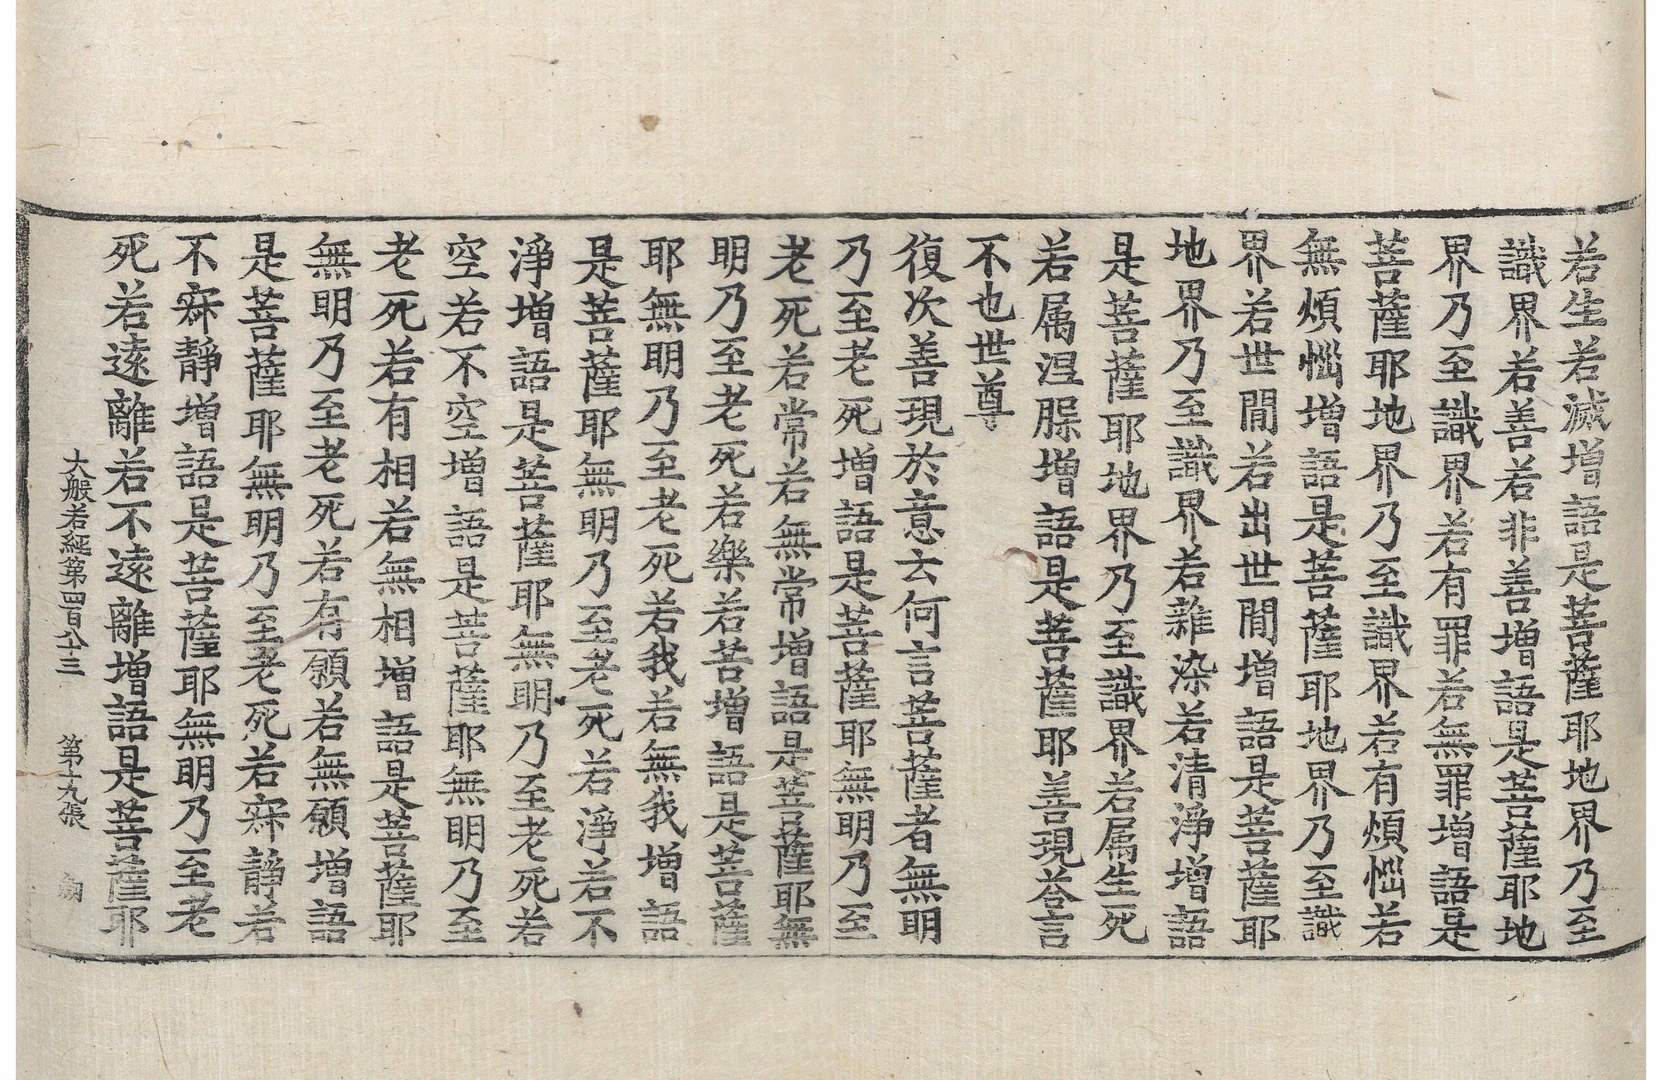 若生若滅增語是菩薩耶地界乃至
識界若善若非善增語是菩薩耶地
界乃至識界若有罪若無罪增語是
菩薩耶地界乃至識界若有煩惱若
無煩惱增語是菩薩耶地界乃至識
界若世間若出世間增語是菩薩耶
地界乃至識界若雜染若清淨增語
是菩薩耶地界乃至識界若属生死
若属涅槃增語是菩薩耶善現荅言
不也世尊
復次善現於意云何言菩薩者無明
乃至老死增語是菩薩耶無明乃至
老死若常若無常增語是菩薩耶無
明乃至老死若樂若苦增語是菩薩
耶無明乃至老死若我若無我增語
是菩薩耶無明乃至老死若淨若不
淨增語是菩薩耶無明乃至老死若
空若不空增語是菩薩耶無明乃至
老死若有相若無相增語是菩薩耶
無明乃至老死若有願若無願增語
是菩薩耶無明乃至老死若寂靜若
不寂靜增語是菩薩耶無明乃至老
死若遠離若不遠離增語是菩薩耶
大般若經第四百八十三 第十九張